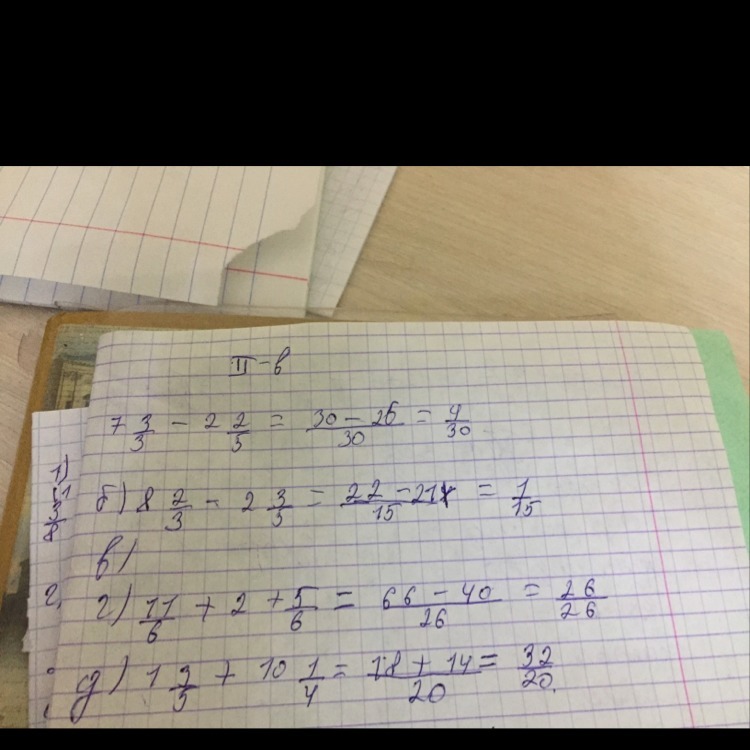 II-в
7 3/3 - 2 2/5 = 30-26/30 = 4/30
б) 8 2/3 - 2 3/5 = 22-21/15 = 1/15
в)
г) 11/6 + 2 + 5/6 = 66-40/26 = 26/26
д) 1 2/5 + 10 1/4 = 18+14/20 = 32/20.
1)